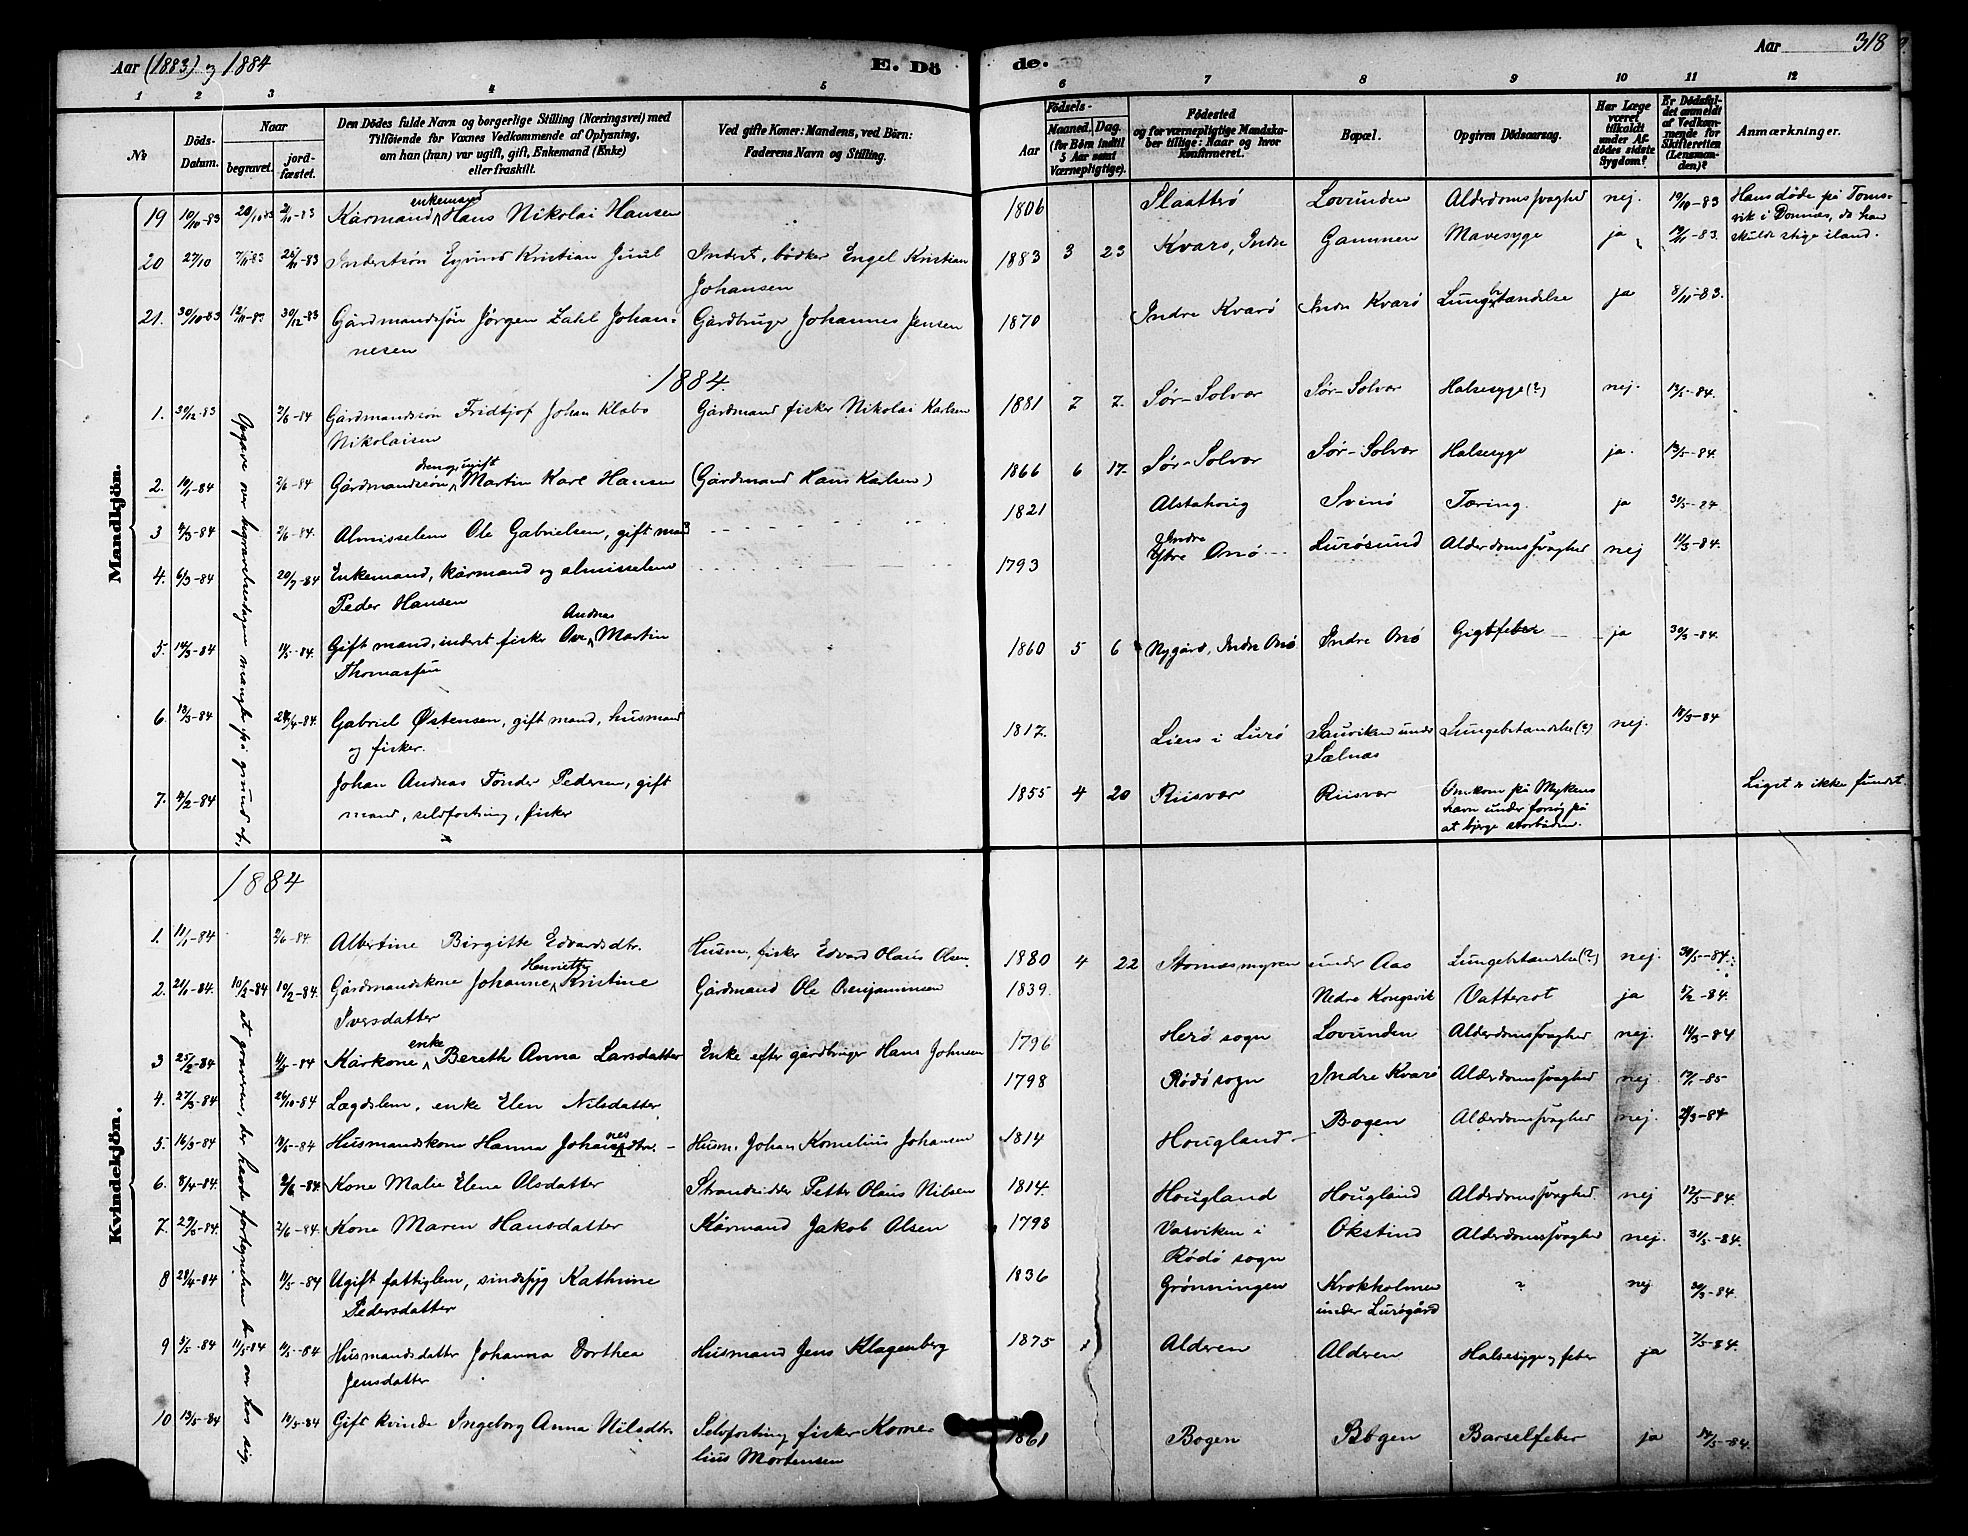 Aar (1883) og 1884
E. Dö
de.
Aar 318
1 2 3 4 5 6 7 8 9 10 11 12
No
Döds-Datum.
Naar
begravet.
jord-fæstet.
Den Dödes fulde Navn og borgerlige Stilling (Næringsvei) med
Tilföiende for Voxnes Vedkommende af Oplysning,
om han (hun) var ugift, gift, Enkemand (Enke)
eller fraskilt.
Ved gifte Koner: Mandens, ved Börn:
Faderens Navn og Stilling.
Födsels-
Aar
Maaned. Dag.
(for Börn indtil
5 Aar samt
Værnepligtige).
Födested
og for værnepligtige Mandska-
ber tillige: Naar og hvor
Konfirmeret.
Bopæl.
Opgiven Dödsaarsag.
Har Læge
været
tilkaldt
under Af-
dödes sidste
Sygdom?
Er Dödsfal-
det anmeldt
af Vedkom-
mende for
Skifteretten
(Lensman-
den)?
Anmærkninger.
Mandkjön.
19 10/10-83 20/10 83 2/11-83 Kårmand enkemand Hans Nikolai Hansen 1806 Slaatterø Lovunden Alderdomssvaghed nej. 19/10-83 Han døde på Toms-
vik i Dønnæs, da han
skulde stige iland.
20 27/10 7/11 83 Inderstsön Eyvind Kristian Juul Inderst, bødker Engel Kristian
Johansen 1883 3 23 Kvarø, Indre Gammen Mavesyge ja
21. 30/10-83 12/11-83 30/12-83 Gårdmandssøn Jørgen Zahl Johan-
nesen Gårdbruger Johannes Jensen 1870 Indre Kvarø Indre Kvarø Lungebetændelse ja 8/11-83.
1884.
1. 30/12-83 2/6-84 Gårdmandssøn Fridtjof Johan Klabo
Nikolaisen Gårdmand fisker Nikolai Karlsen 1881 7 7. Sør-Solvær Sør-Solvær Halsesyge (?) nej. 13/5-84.
2. 2/6-84 Gårdmandssøn dreng ugift Martin Karl Hansen (Gårdmand Hans Karlsen) 1866 6 17. Sør-Solvær Sør-Solvær Halsesyge ja. 13/5-84.
3 4/3-84 2/6-84. Almisselem Ole Gabrielsen, gift mand 1821 Alstahoug Svinø Tæring. ja
4. 6/3-84 Enkemand, kårmand og almisselem
Peder Hansen 1793 Indre
Ytre Onø Lurøsund Alderdomssvaghed nej 11/3-84.
5. 14/3-84 11/5-84. Gift mand, inderst fisker Ove Andreas Martin
Thomassen 1860 5 6 Nygård, Indre Onø Indre Onø Gigtfeber ja 30/3-84.
6. 13/3-84 Gabriel Østensen, gift mand, husmand
og fisker. 1817. Lien i Lurø Sauviken under
Sælnæs Lungebetændelse (?) nej. 18/3-84
7. 4/2-84 Johan Andreas Tonder Pedersen, gift
mand, selvfostring, fisker 1855 4 20 Riisvær Riisvær Omkom på Mykens
havn under forsøg på
at bjerge storbåden. Liget er ikke fundet.
Opgave over begravelsesdagen mangler på grund af,
at graveren, der havde fortegnelsen over hos sig,
Kvindekjön.
1884
1. 11/1-84 2/6-84 Albertine Birgitte Edvardsdtr. Husm., fisker Edvard Olaus Olsen. 1880 4 22 Stornæsmyren under Aas Lungebetændelse (?) nej. 30/5-84.
2. 21/1-84. 10/2-84 10/2-84. Gårdmandskone Johanne Henriette Kristine
Iversdatter Gårdmand Ole Benjaminsen 1839. Nedre Kongsvik Vattersot ja 5/2-84.
3 25/2-84 11/5-84 Kårkone enke Bereth Anna Larsdatter Enke efter gårdbruger Hans Johnsen 1796 Herø sogn Lovunden Alderdomssvaghed nej.
4. 27/3-84 26/10-84 Lægdslem, enke Elen Nilsdatter 1798 Rødø sogn Indre Kvarø Alderdomssvaghed nej.
5. 16/3-84 11/5-84 Husmandskone Hanna Johannesdtr. Husm. Johan Kornelius Johansen 1814 Hougland Bogen Alderdomssvaghed nej.
6. 8/4-84. 2/6-84. Kone Malie Elena Olsdatter Strandsidder Petter Olaus Nilsen 1814. Hougland Hougland Alderdomssvaghed. nej 12/5-84.
7. 29/5-84. 2/6-84. Kone Maren Hansdatter Kårmand Jakob Olsen 1798 Vasviken i
Rødø sogn Okstind Alderdomssvaghed nej. 31/5-84.
8 28/4-84 11/5-84 Ugift fattiglem, sindssyg Kathrine
Pedersdatter 1836 Grønningen Krokholmen
under Lurøgård ? nej
9 5/5-84 11/5-84 11/5-84 Husmandsdatter Johanna Dorthea
Jensdatter Husmand Jens Klagenberg 1875 Alderen Alderen Halsesyge og feber ja 7/5-84.
10 13/5-84 Gift kvinde Ingeborg Anna Nilsdtr. Selvfostring fisker Korne-
lius Mortensen 1861 Bogen Bogen Barselfeber ja